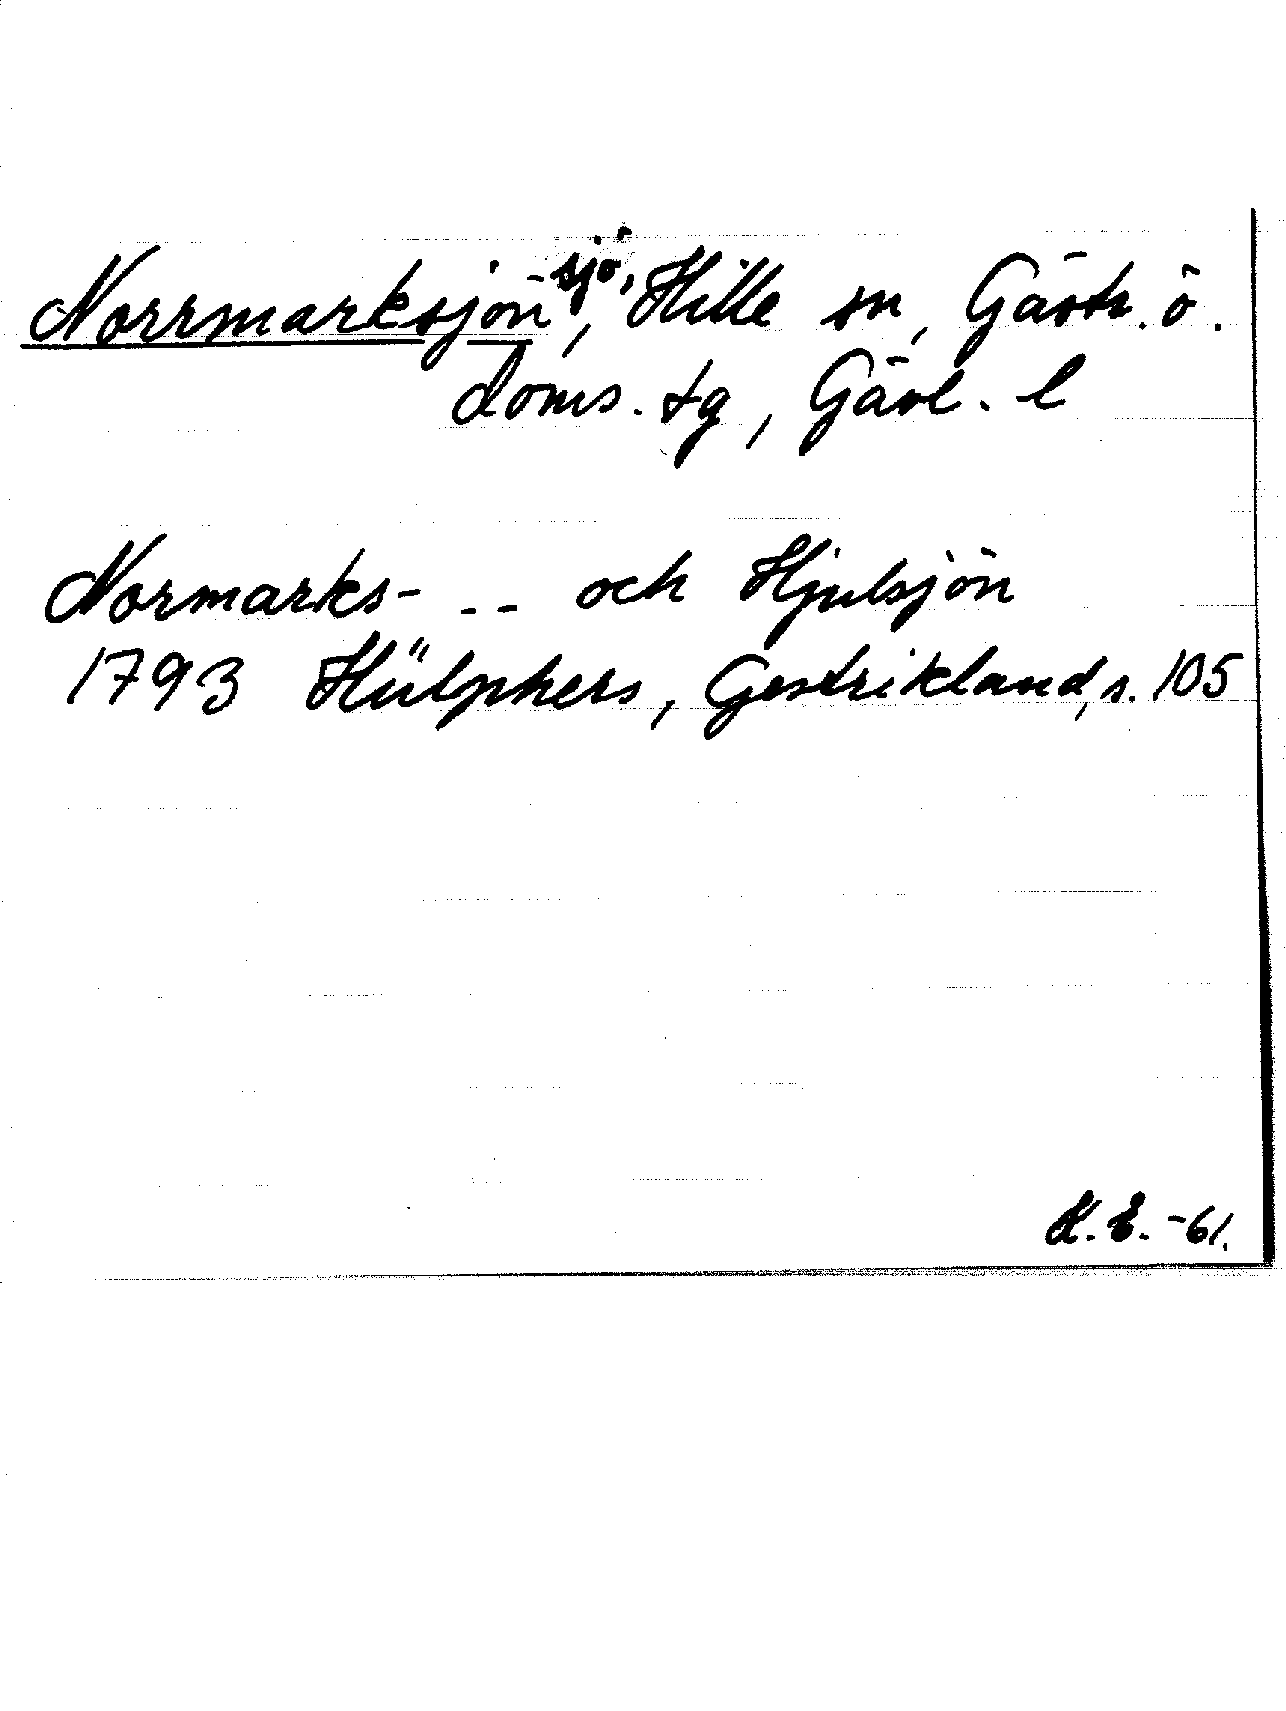 Norrmarksjön, sjö, Hille sn, Gästr. ö.
doms. tg, Gävl. l
Normarks- -- och Hjulsjön
1793 Hülphers, Gestrikland, s. 105
K. E. -61.